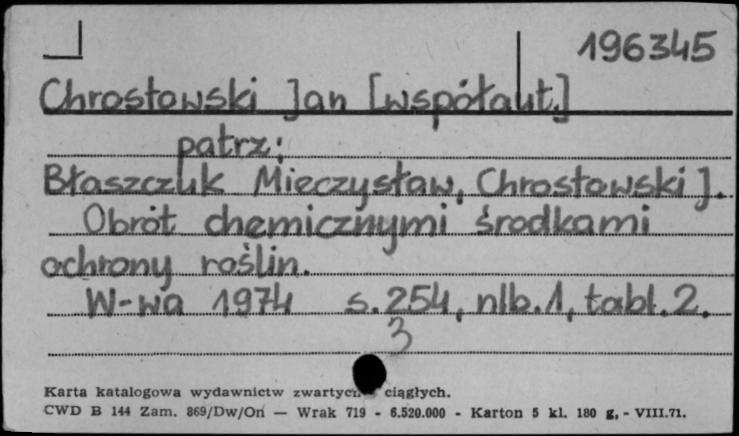 196345
Chrostowski Jan [współaut.]
patrz:
Błaszczuk Mieczysław, Chrostowski J.
Obrót chemicznymi środkami
ochrony roślin.
W-wa 1974 s. 254, nlb. 1, tabl. 2.
3
Karta katalogowa wydawnictw ciągłych.
CWD B 144 Zam. 869/Dw/On — Wrak 719 - 6.520.000 - Karton 5 kl. 180 g, - VIII.71.